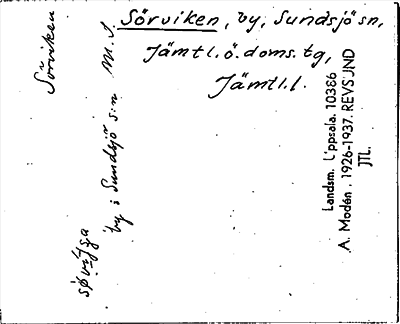 Sörviken, by, Sundsjö sn,
Jämtl.ö.doms.tg,
Jämtl.l.
Sörviken
by i Sundsjö s:n M. S.
Landsm. Uppsala. 10386
A. Modén. 1926-1937. REVSUND
JTL.